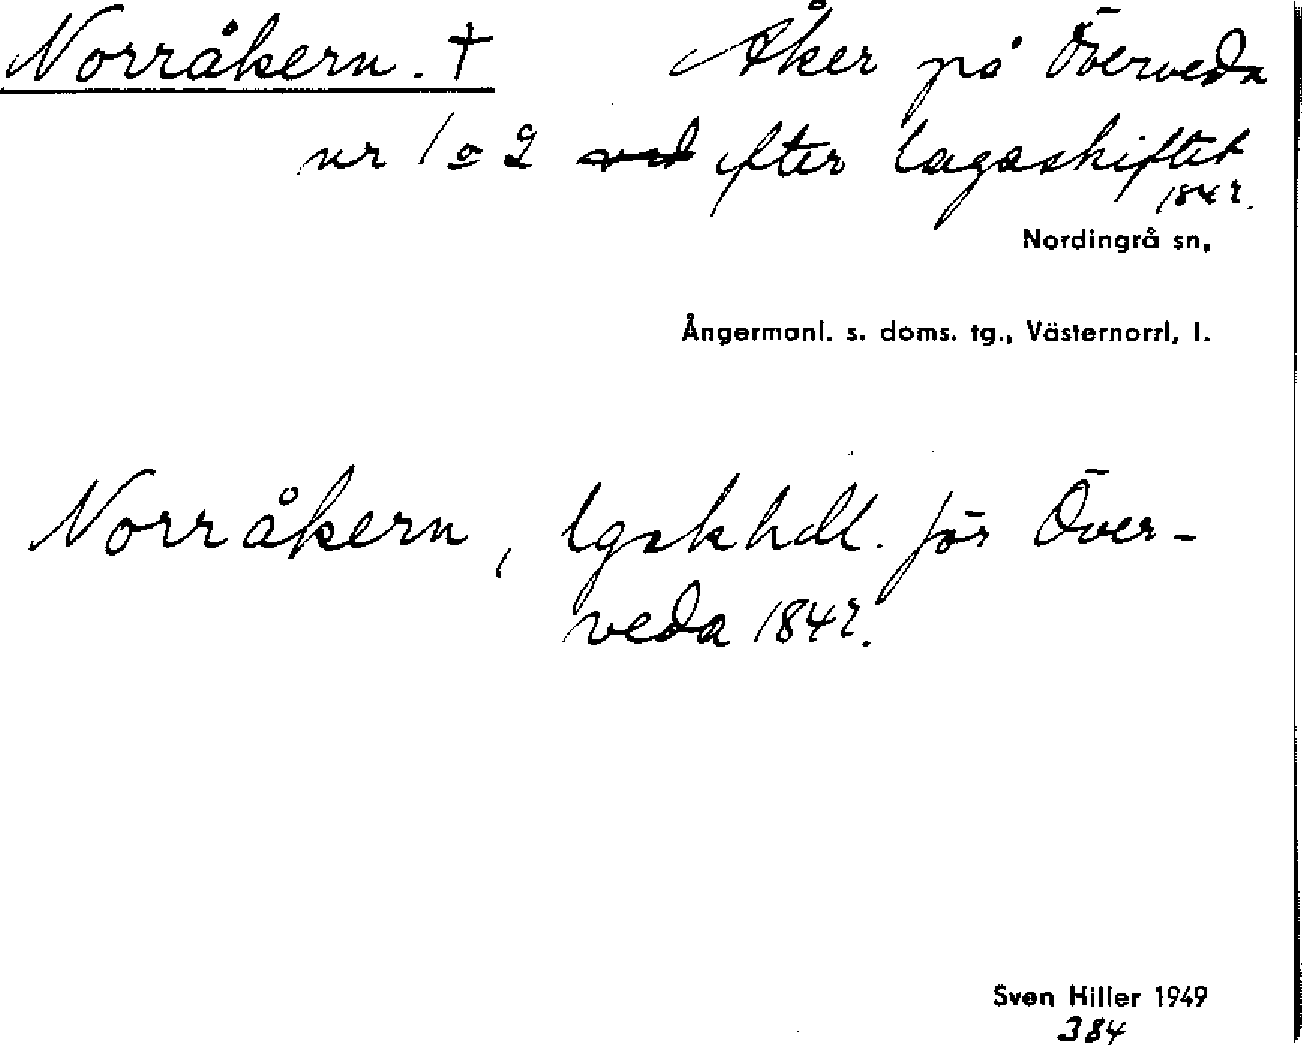 Norråkern. † Åker på Överveda
nr 1 o 2 ved efter lagaskiftet
1842.
Nordingrå sn,
Ångermanl. s. doms. tg., Västernorrl. l.
Norråkern, lgskhdl. för Över-
veda 1842.
Sven Hiller 1949
384